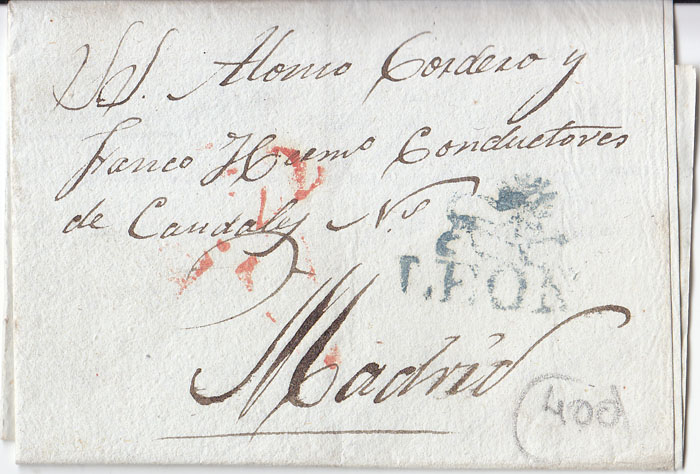 SS. Alonso Cordero y
Franco Herm.º Conductores
de Caudales N.s
Madrid
400